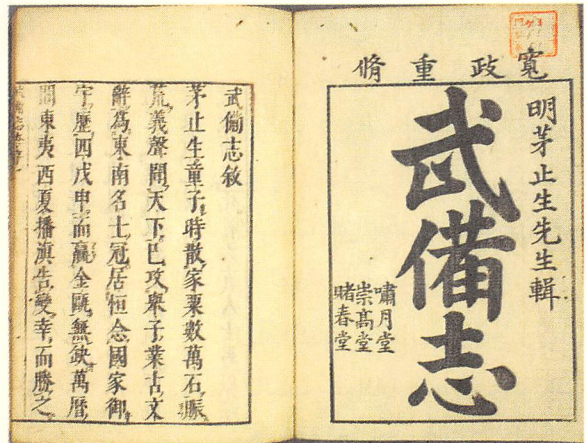 寛政重脩
明茅止生先生輯
武備志
嘯月堂
崇高堂
睹春堂
武備志敘
茅止生童子時散家粟數萬石賑
荒義聲聞天下已攻舉子業古文
辭為東南名士冠居恒念國家御
宇歷四戊申而贏金甌無缺萬曆
間東夷西夏播滇告變幸而勝之